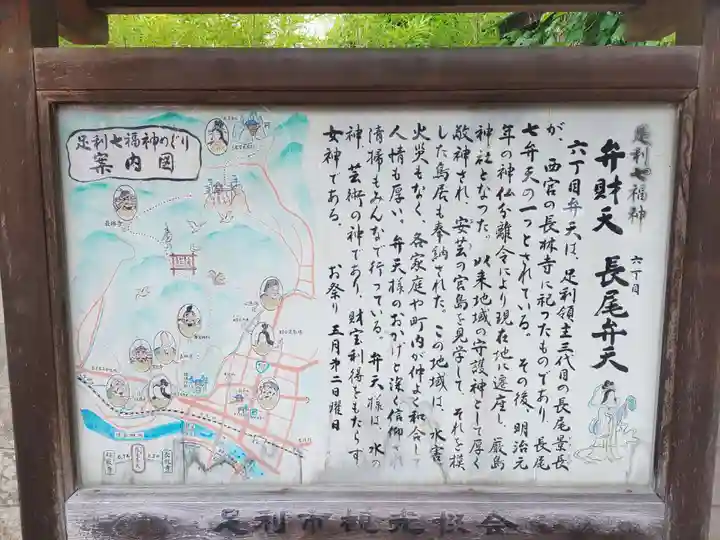 足利七福神
弁財天 六丁目 長尾弁天
六丁目弁天は、足利領主三代目の長尾景長
が、西宮の長林寺に祀ったものであり、長尾
七弁天の一つとされている。その後、明治元
年の神仏分離令により現在地に遷座し、厳島
神社となった。以来地域の守護神として厚く
敬神され、安芸の宮島を見学して、それを模
した鳥居も奉納された。この地域は、水害
火災もなく、各家庭や町内が仲よく和合して
人情も厚い。弁天様のおかげと深く信仰され
清掃もみんなで行っている。弁天様は、水の
神、芸術の神であり、財宝利得をもたらす
女神である。 お祭り 五月第二日曜日
足利七福神めぐり
案内図
長林寺
足利市観光協会